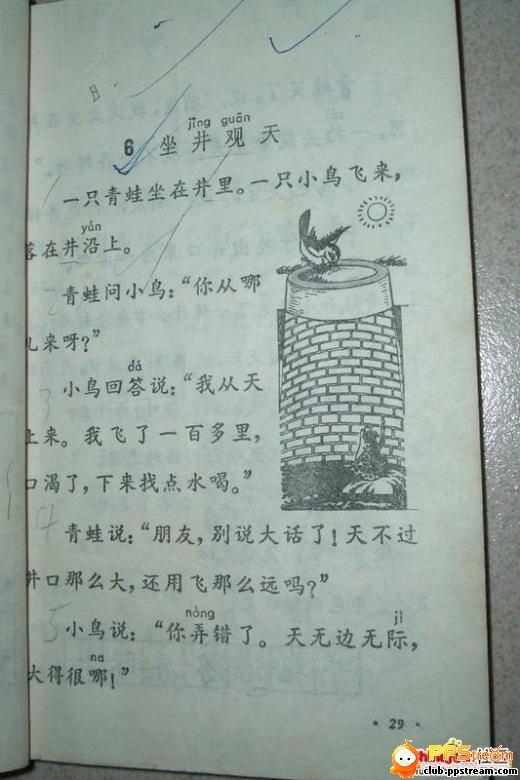 jǐng guān
6 坐井观天
一只青蛙坐在井里。一只小鸟飞来,
yán
落在井沿上。
青蛙问小鸟:“你从哪
儿来呀?”
dá
小鸟回答说:“我从天
上来。我飞了一百多里,
口渴了,下来找点水喝。”
青蛙说:“朋友,别说大话了!天不过
井口那么大,还用飞那么远吗?”
nòng jì
小鸟说:“你弄错了。天无边无际,
na
大得很哪!”
1
2
3
4
5
· 29 ·
PPStream
club.ppstream.com